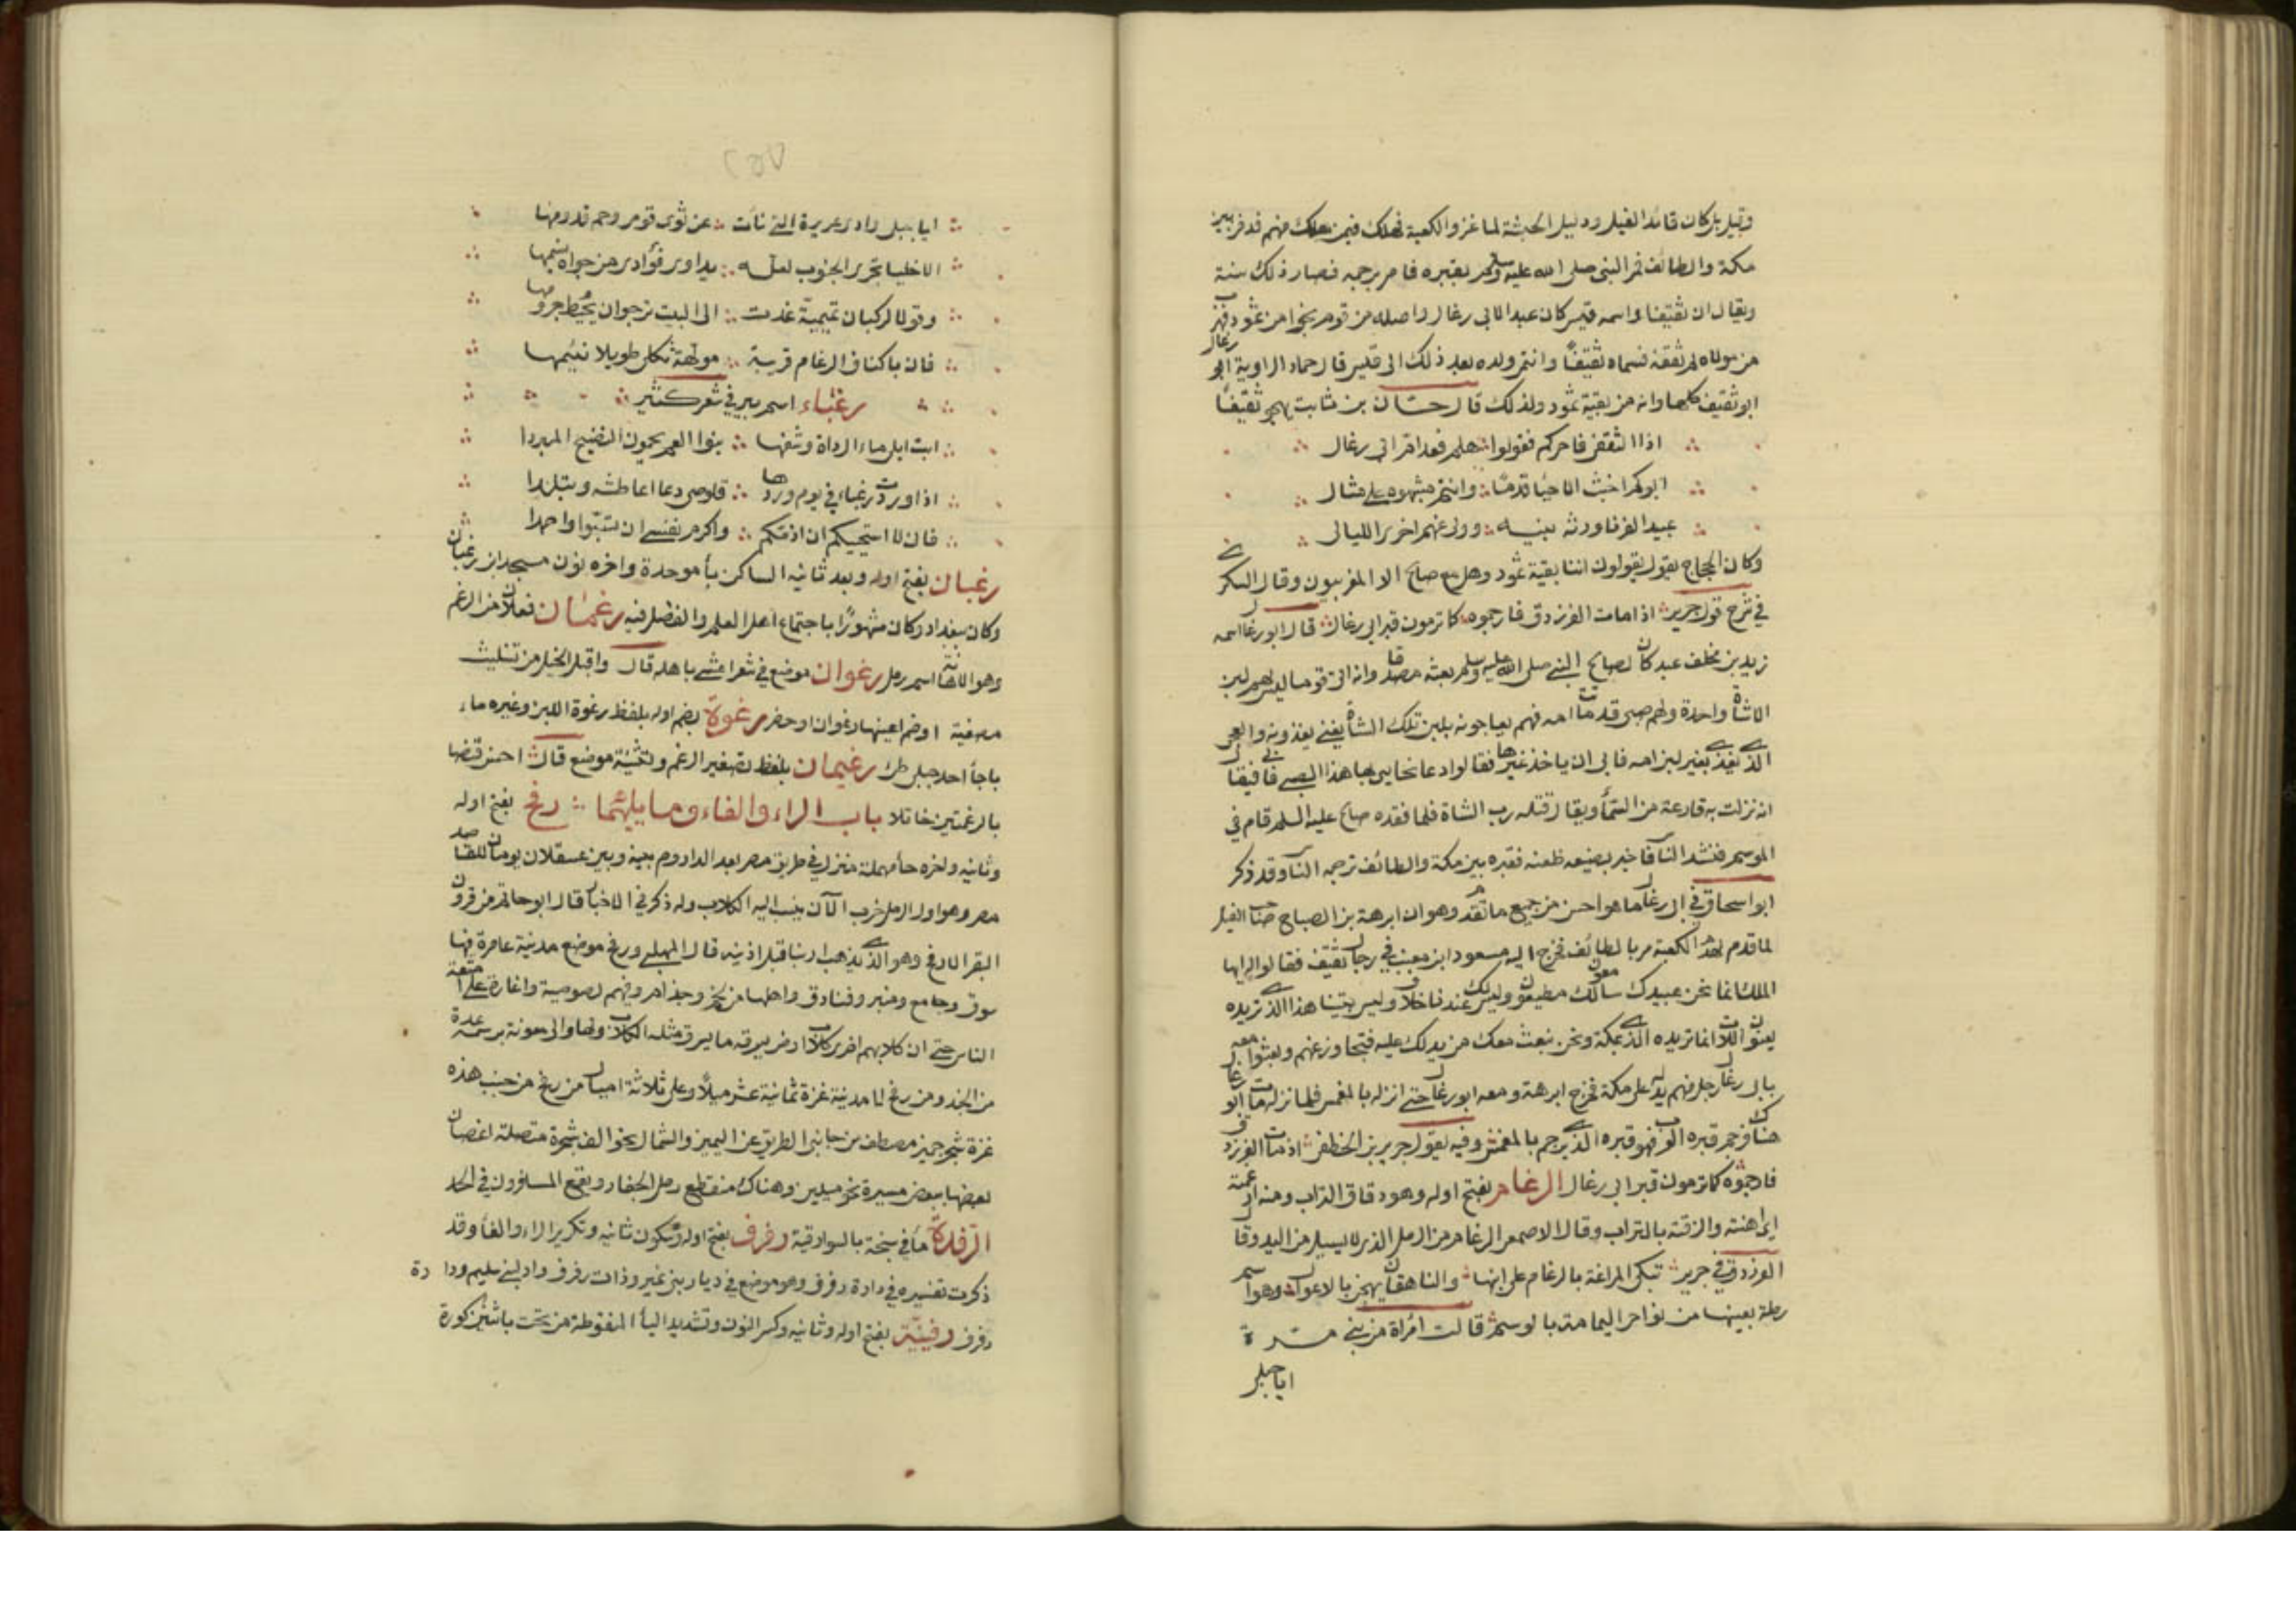 وقيل بل كان قائد الفيل ودليل الحبشة لما غزوا الكعبة فهلك فيمن هلك منهم فدفن بين
مكة والطائف فمر النبى صلى الله عليه وسلم بقبره فامر برجمه فصار ذلك سنة
ويقال ان ثقيفا واسمه قيس كان عبدا لابى رغال واصله من قوم نجوا من ثمود فهرب
من مولاه ثم ثقفه فسماه ثقيفًا وانتمى ولده بعد ذلك الى قيس قال حماد الراوية ابو رغال
ابو ثقيف كلها وانه من بقية ثمود ولذلك قال حسان بن ثابت يهجو ثقيفًا
اذا الثقفى فاخركم فقولوا هلم فعد امر ابى رغال
ابوكم اخبث الاحيا قدمًا وانتم مشبهوه على مثال
عبيد الفزر اورثه بنيه وولى عنهم اخرى الليالى
وكان الحجاج يقول يقولون اننا بقية ثمود وهل مع صالح الا المقربون وقال السكرى
فى شرح قول جرير اذا مات الفرزدق فارجموه كما ترمون قبر ابى رغال قال ابو رغال اسمه
زيد بن مخلف عبد كان لصالح النبى صلى الله عليه وسلم بعثه مصدقا وانه اتى قوما ليس لهم لبن
الا شاة واحدة ولهم صبى قد ماتت امه فهم يعاجونه بلبن تلك الشاة يعنى يغذونه والعجى
الذى يغذى بغير لبن امه فابى ان ياخذ غيرها فقالوا دعها نحايى بها هذا الصبى فابى فيقال
انه نزلت به قارعة من السمأ ويقال قتله رب الشاة فلما فقده صالح عليه السلم قام فى
الموسم فنشد الناس فاخبر بصنيعه فلعنه فقبره بين مكة والطائف ترجمه الناس وقد ذكر
ابو اسحاق فى ابى رغال ما هو احسن من جميع ما تقدم وهو ان ابرهة بن الصباح صاحب الفيل
لما قدم لهدم الكعبة مر بالطائف فخرج اليه مسعود ابن معتب فى رجال ثقيف فقالوا ايها
الملك انما نحن عبيدك سامعون لك مطيعون وليس لك عندنا خلاف وليس بيتنا هذا الذى تريده
يعنون اللات انما تريده الذى بمكة ونحن نبعث معك من يدلك عليه فتجاوز عنهم وبعثوا معه
بابى رغال رجل منهم يدله على مكة فخرج ابرهة ومعه ابو رغال حتى انزله بالمغمس فلما نزله مات ابو رغال
هناك فرجم قبره العرب فهو قبره الذى يرجم بالمغمس وفيه يقول جرير بن الخطفى اذا مات الفرزدق
فارجموه كما ترمون قبر ابى رغال الرغام بفتح اوله وهو دقاق التراب ومنه ارغمته
اى اهنته والزقته بالتراب وقال الاصمعى الرغام من الرمل الذى لا يسيل من اليد وقال
الفرزدق فى جرير تبكى المراغة بالرغام على ابنها والناهقات يهجن بالاعوال وهو اسم
رملة بعينها من نواحى اليمامة بالوسم قالت امرأة من بنى مرة
ايا جبلى
ايا جبلى وادى عريرة التى نأت عن ثوى قوم وحم قدومها
الا خليا تجرى الجنوب لعله يداوى فؤادى من جواه نسيمها
وقولا لركبان تميمية غدت الى البيت ترجو ان يُحط جرومها
فان باكناف الرغام قريبة مولهة ثكلى طويلا نئيمها
رغباء اسم بير فى شعر كثير
ابت ابلى ماء الرداة وشفها بنوا العم يحمون النضيح المبردا
اذا وردت رغباء فى يوم وردها قلوصى دعا اعطاشه وتبلدا
فان لا استحييكم ان اذمكم واكرم نفسى ان تسبوا واحمدا
رغبان بفتح اوله وبعد ثانيه الساكن بأ موحدة واخره نون مسجد ابن رغبان
وكان ببغداد وكان مشهورًا باجتماع اهل العلم والفضل فيه رغمان فعلان من الرغم
وهو الاهانة اسم رمل رغوان موضع فى شعر اعشى باهله قال واقبل الخيل من تثليث
مصغية او ضم اعينها رغوان او حضر رغوة بضم اوله بلفظ رغوة اللبن وغيره ماء
باجأ احد جبلى طى رغيمان بلفظ تصغير الرغم وتثنيته موضع قال احس قنصا
بالرغمتين خاتلا باب الراء والفاء وما يليهما رفح بفتح اوله
وثانيه واخره حأ مهملة منزل فى طريق مصر بعد الداروم بينه وبين عسقلان يومان للقاصد
مصر وهو اول الرمل خرب الآن ينسب اليه الكلاب وله ذكر فى الاخبار قال ابو حاتم من قرون
البقر الارفح وهو الذى يذهب ادبنا قبل اذنيه قال المهلبى ورفح موضع مدينة عامرة فيها
سوق وجامع ومنبر وفنادق واهلها من لخم وجذام وفيهم لصوصية واغارة على امتعة
الناس حتى ان كلابهم اضرى كلاب ارض بسرقة ما يسرق مثله الكلاب ولها والى معونة برسمه عدة
من الجند ومن رفح الى مدينة غزة ثمانية عشر ميلاً وعلى ثلاثة اميال من رفح من جنب هذه
غزة شجر جميز مصطف من جانبى الطريق عن اليمين والشمال نحو الف شجرة متصلة اغصان
بعضها ببعض مسيرة نحو ميلين وهناك منقطع رمل الجفار ويقع المسافرون فى الجلد
الرفدة مأ فى سبخة بالسوارقية رفرف بفتح اوله وسكون ثانيه وتكرير الراء والفأ وقد
ذكرت تفسيره فى دارة رفرف وهو موضع فى ديار بنى نمير وذات رفرف واد لبنى سليم ودارة
رفرف رفنيّة بفتح اوله وثانيه وكسر النون وتشديد اليأ المنقوطة من تحت باثنتين كورة